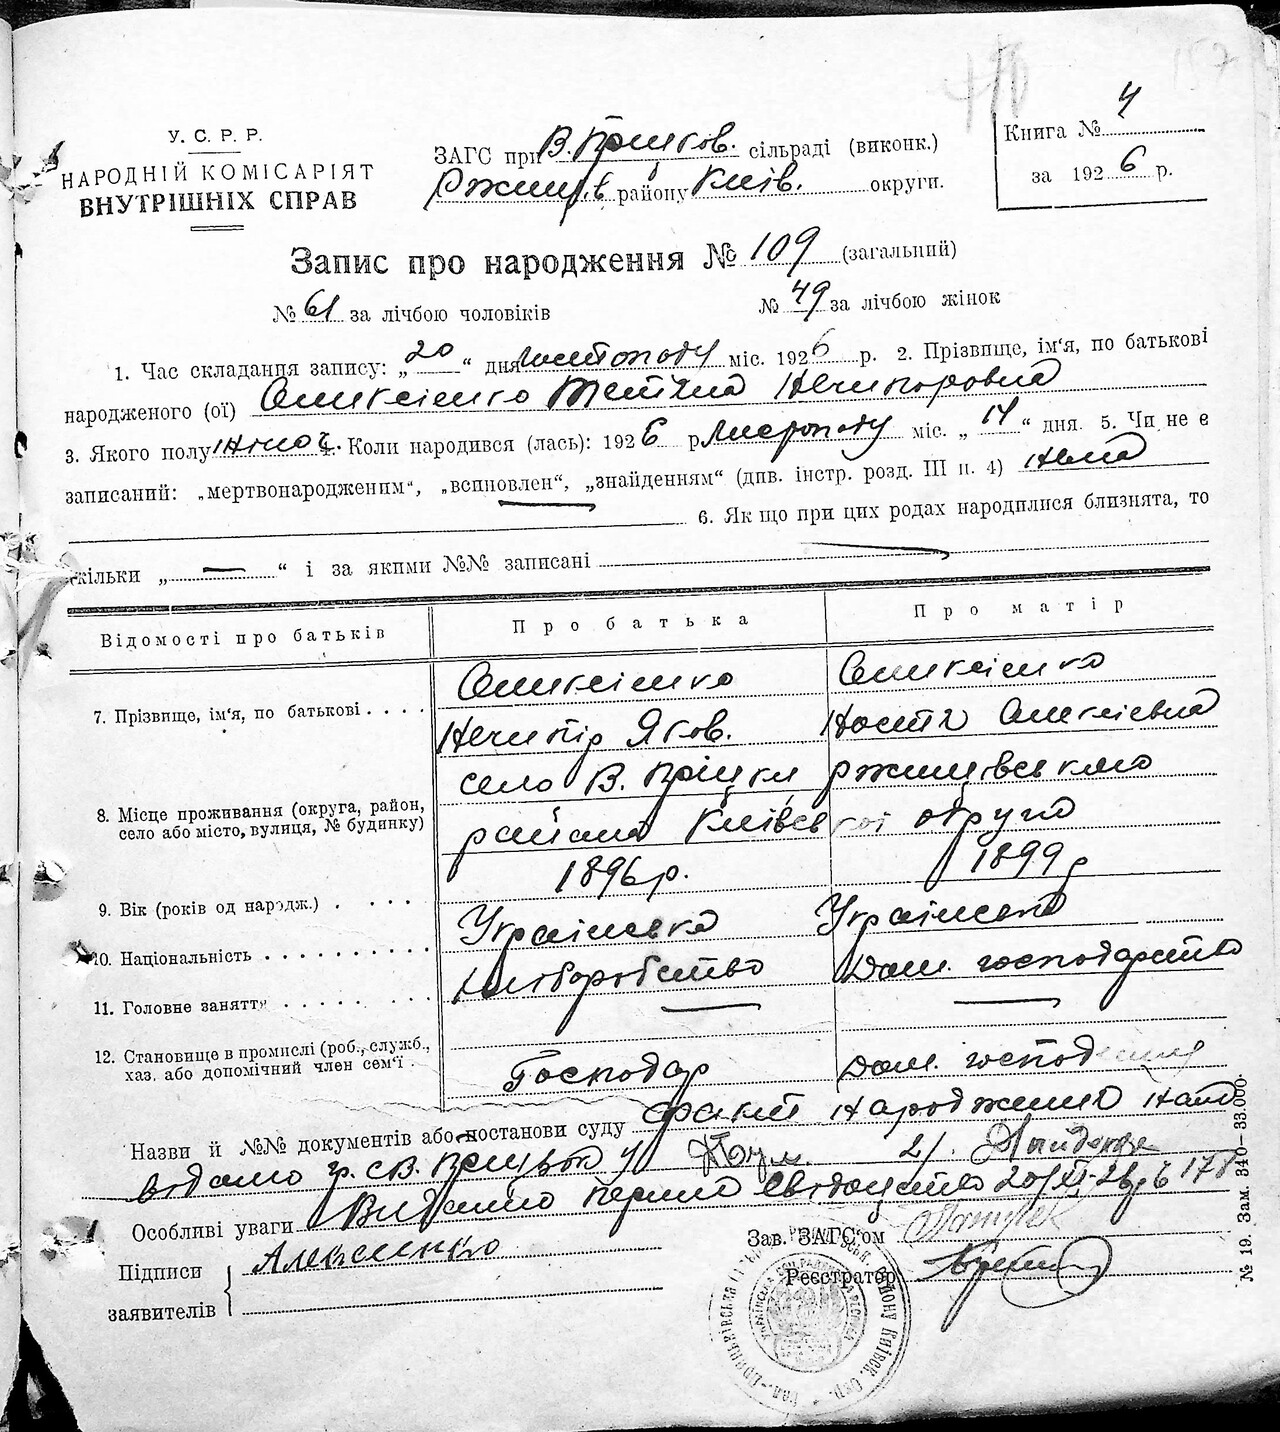 У. С. Р. Р.
НАРОДНІЙ КОМІСАРІЯТ
ВНУТРІШНІХ СПРАВ
ЗАГС при В. Пріцков. сільраді (виконк.)
Ржищ.в району Київ. округи.
Книга № 4
за 1926 р.
Запис про народження № 109 (загальний)
№ 61 за лічбою чоловіків № 49 за лічбою жінок
1. Час складання запису: „20“ дня листопаду міс. 1926 р. 2. Прізвище, ім'я, по батькові
народженого (ої) Оликсієнко Тетіяна Нечипоровна
3. Якого полу жіноч. Коли народився (лась): 1926 р. Листопаду міс. „14“ дня. 5. Чи не є
записаний: „мертвонародженим“, „всиновлен“, „знайденням“ (див. інстр. розд. III п. 4) нема
6. Якщо при цих родах народилися близнята, то
скільки „—“ і за якими №№ записані
Відомості про батьків Про батька Про матір
7. Прізвище, ім'я, по батькові . . . .
Оликсієнко Оликсієнко
Нечипір Яков. Настя Оликсієвна
8. Місце проживання (округа, район,
село або місто, вулиця, № будинку)
село В. Пріцки Ржищівського
района Київської округа
9. Вік (років од народж.) . . . . 1896 р. 1899 р
10. Національність . . . . . . . . . . Українська Українська
11. Головне заняття . . . . . . . . Хліборобство Дом. господарство
12. Становище в промислі (роб., служб.,
хаз. або допомічний член сем'ї . Господар Дом. господ
Назви й №№ документів або постанови суду факт народження нам
відомо гр. с В. Пріцьок 1/ 2/
Особливі уваги Видано перше свідоцтво 20/XI-26 р. № 178
Підписи
заявителів
Алексієнко
Зав. ЗАГС'ом
Реєстратор
№ 19. Зам. 340—33.000.